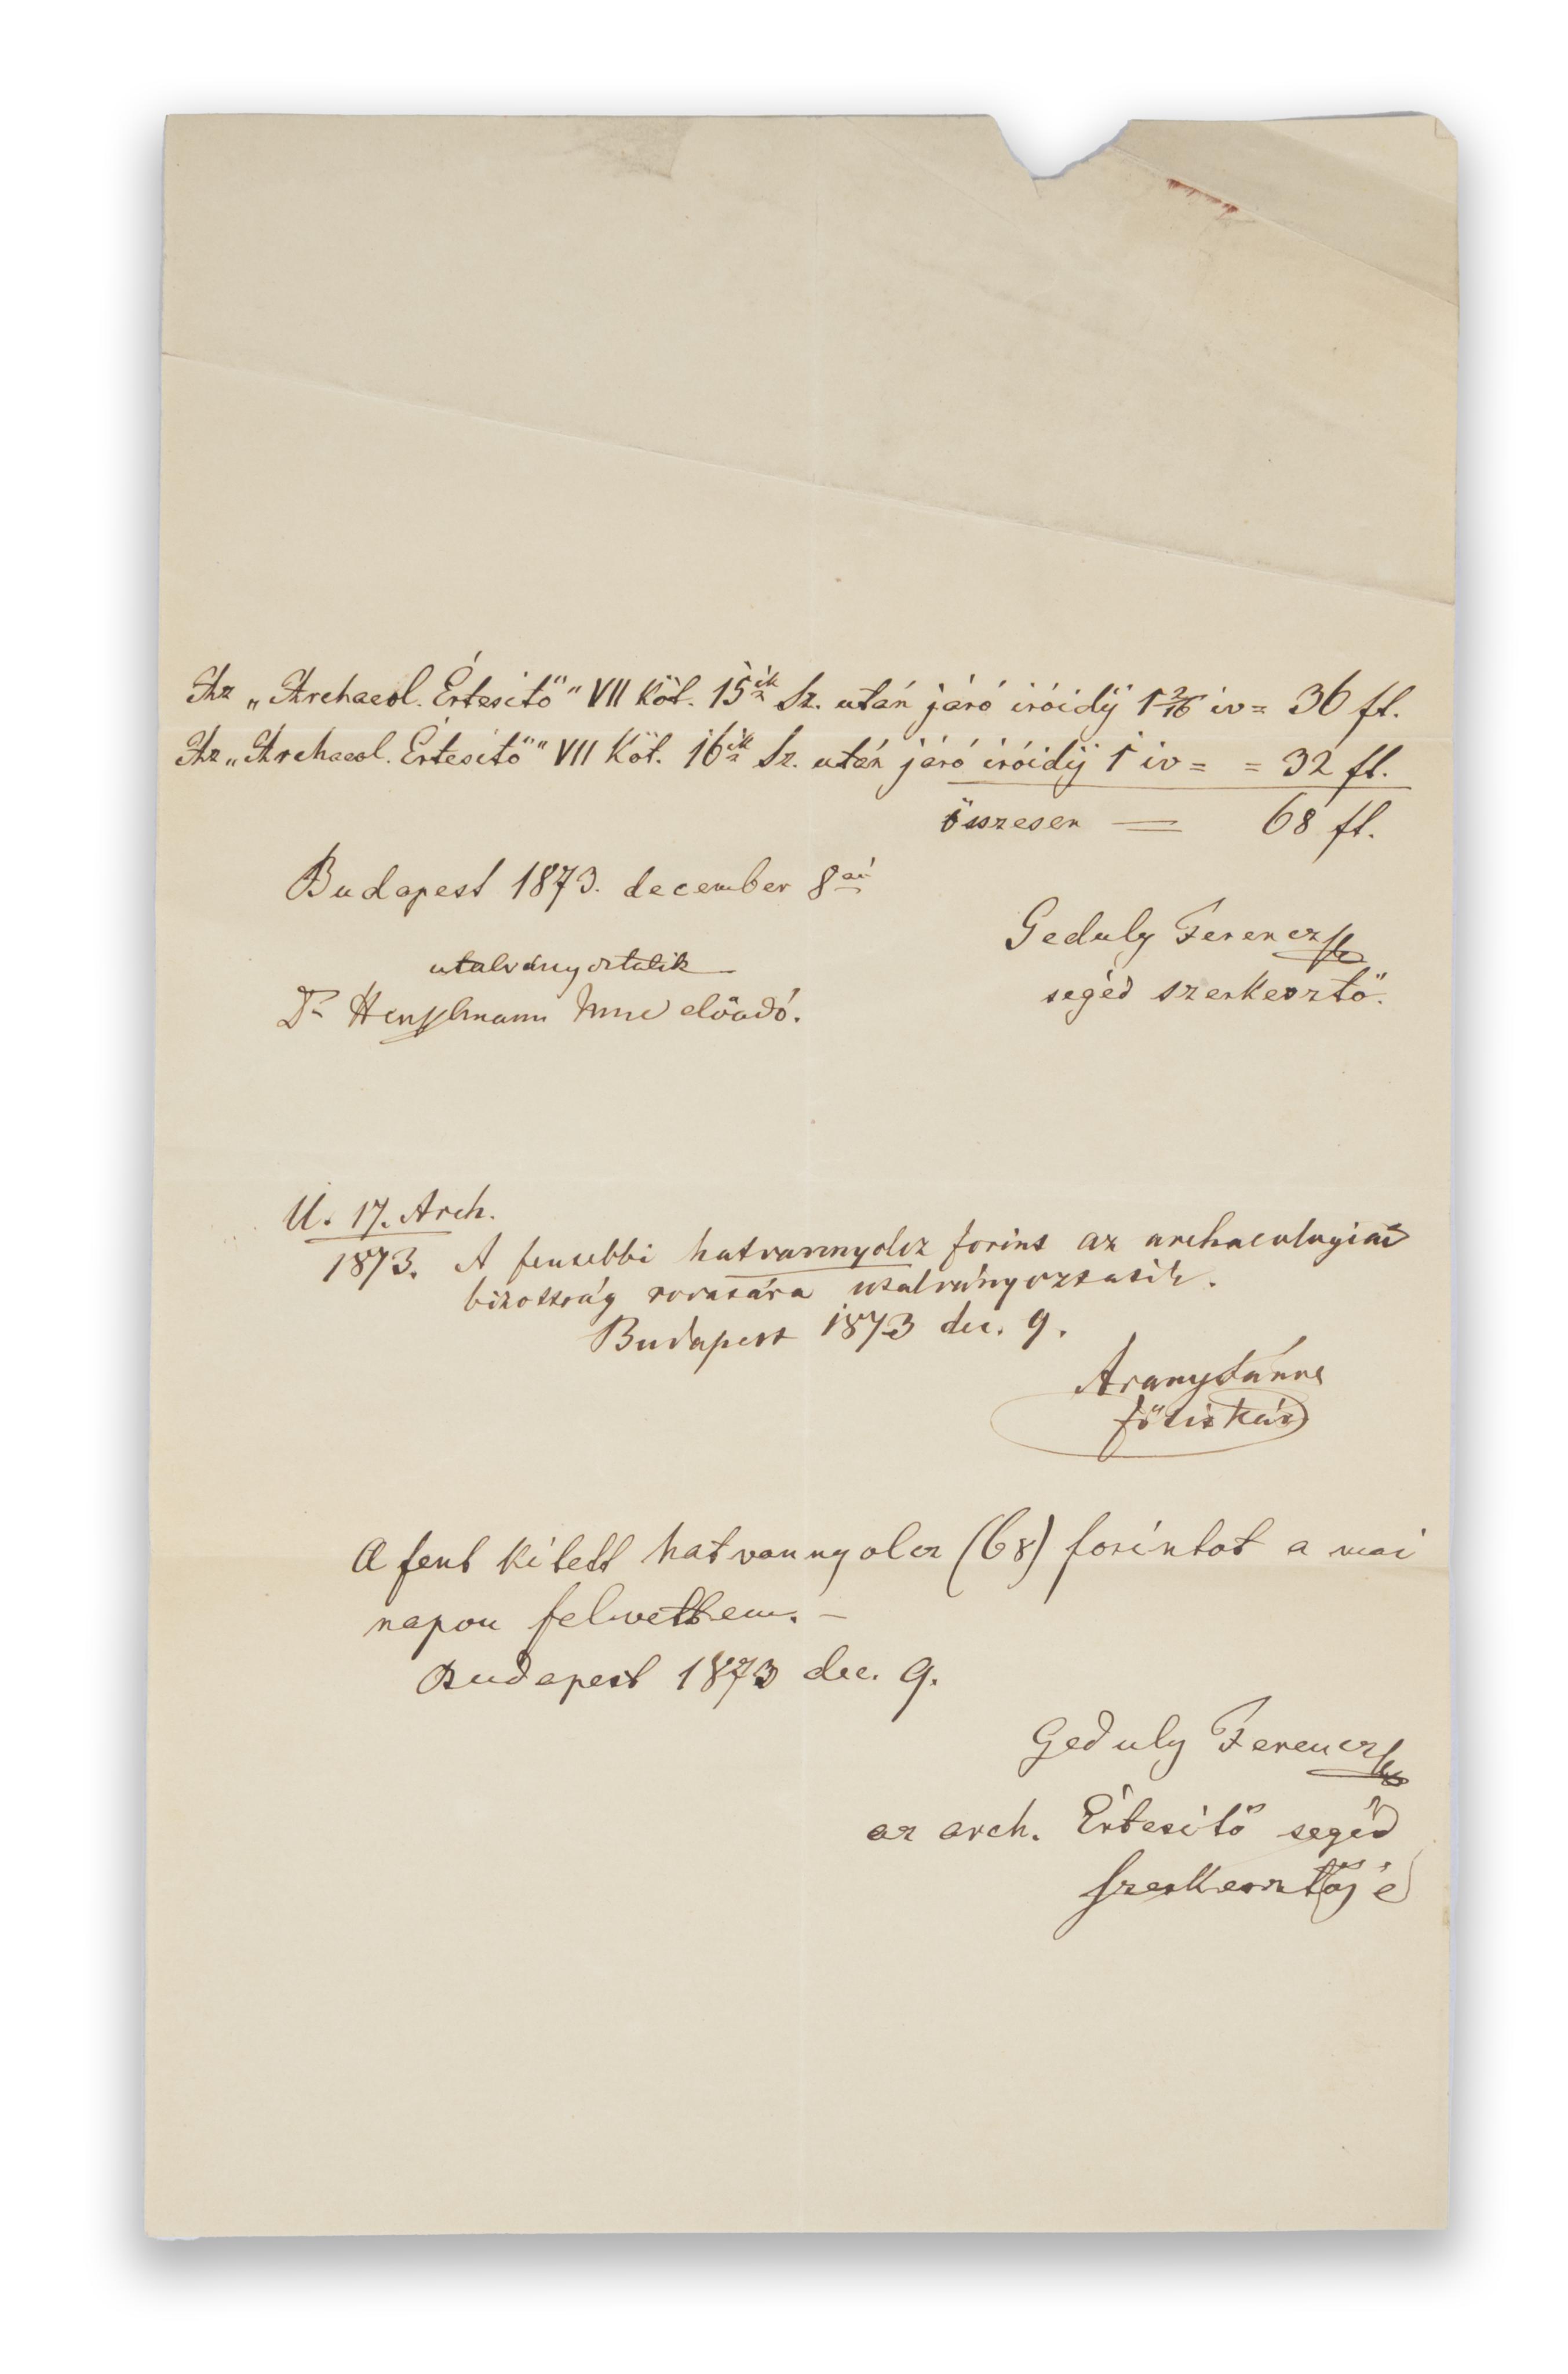 Az „Archaeol. Értesitö" VII Köt. 15ik Sz. után járó iróidíj 1 2/16 iv = 36 ft.
Az „Archaeol. Értesitö" VII Köt. 16ik Sz. után járó iróidíj 1 iv = = 32 ft.
összesen = 68 ft.
Budapest 1873. december 8án
Geduly Ferencz
segéd szerkesztö.
utalványoztatik
Dr Henszlmann Imre elöadó.
U. 17. Arch.
1873. A fentebbi hatvannyolcz forint az archaeologiai
bizottság rovására utalványoztatik.
Budapest 1873 dec. 9.
Arany János
fötitkár
A fent kitett hatvannyolcz (68) forintot a mai
napon felvettem. –
Budapest 1873 dec. 9.
Geduly Ferencz
az arch. Értesitö segéd
szerkesztöje